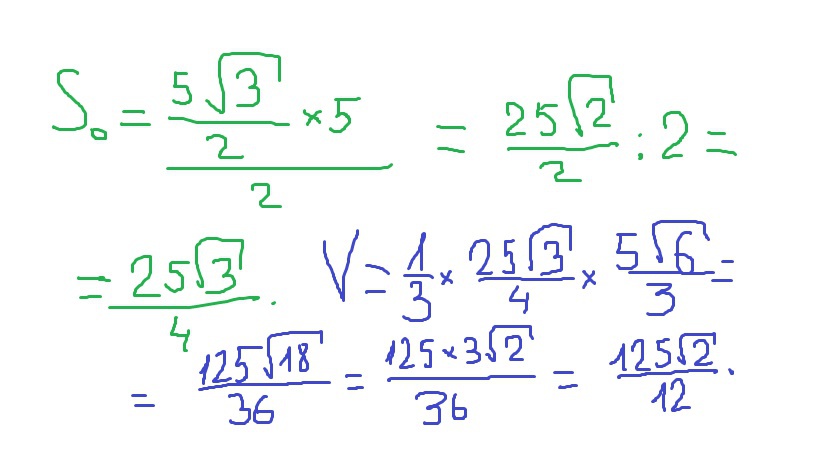 S₀ = ((5√3)/2 × 5)/2 = (25√2)/2 : 2 =
= (25√3)/4. V = 1/3 × (25√3)/4 × (5√6)/3 =
= (125√18)/36 = (125×3√2)/36 = (125√2)/12.